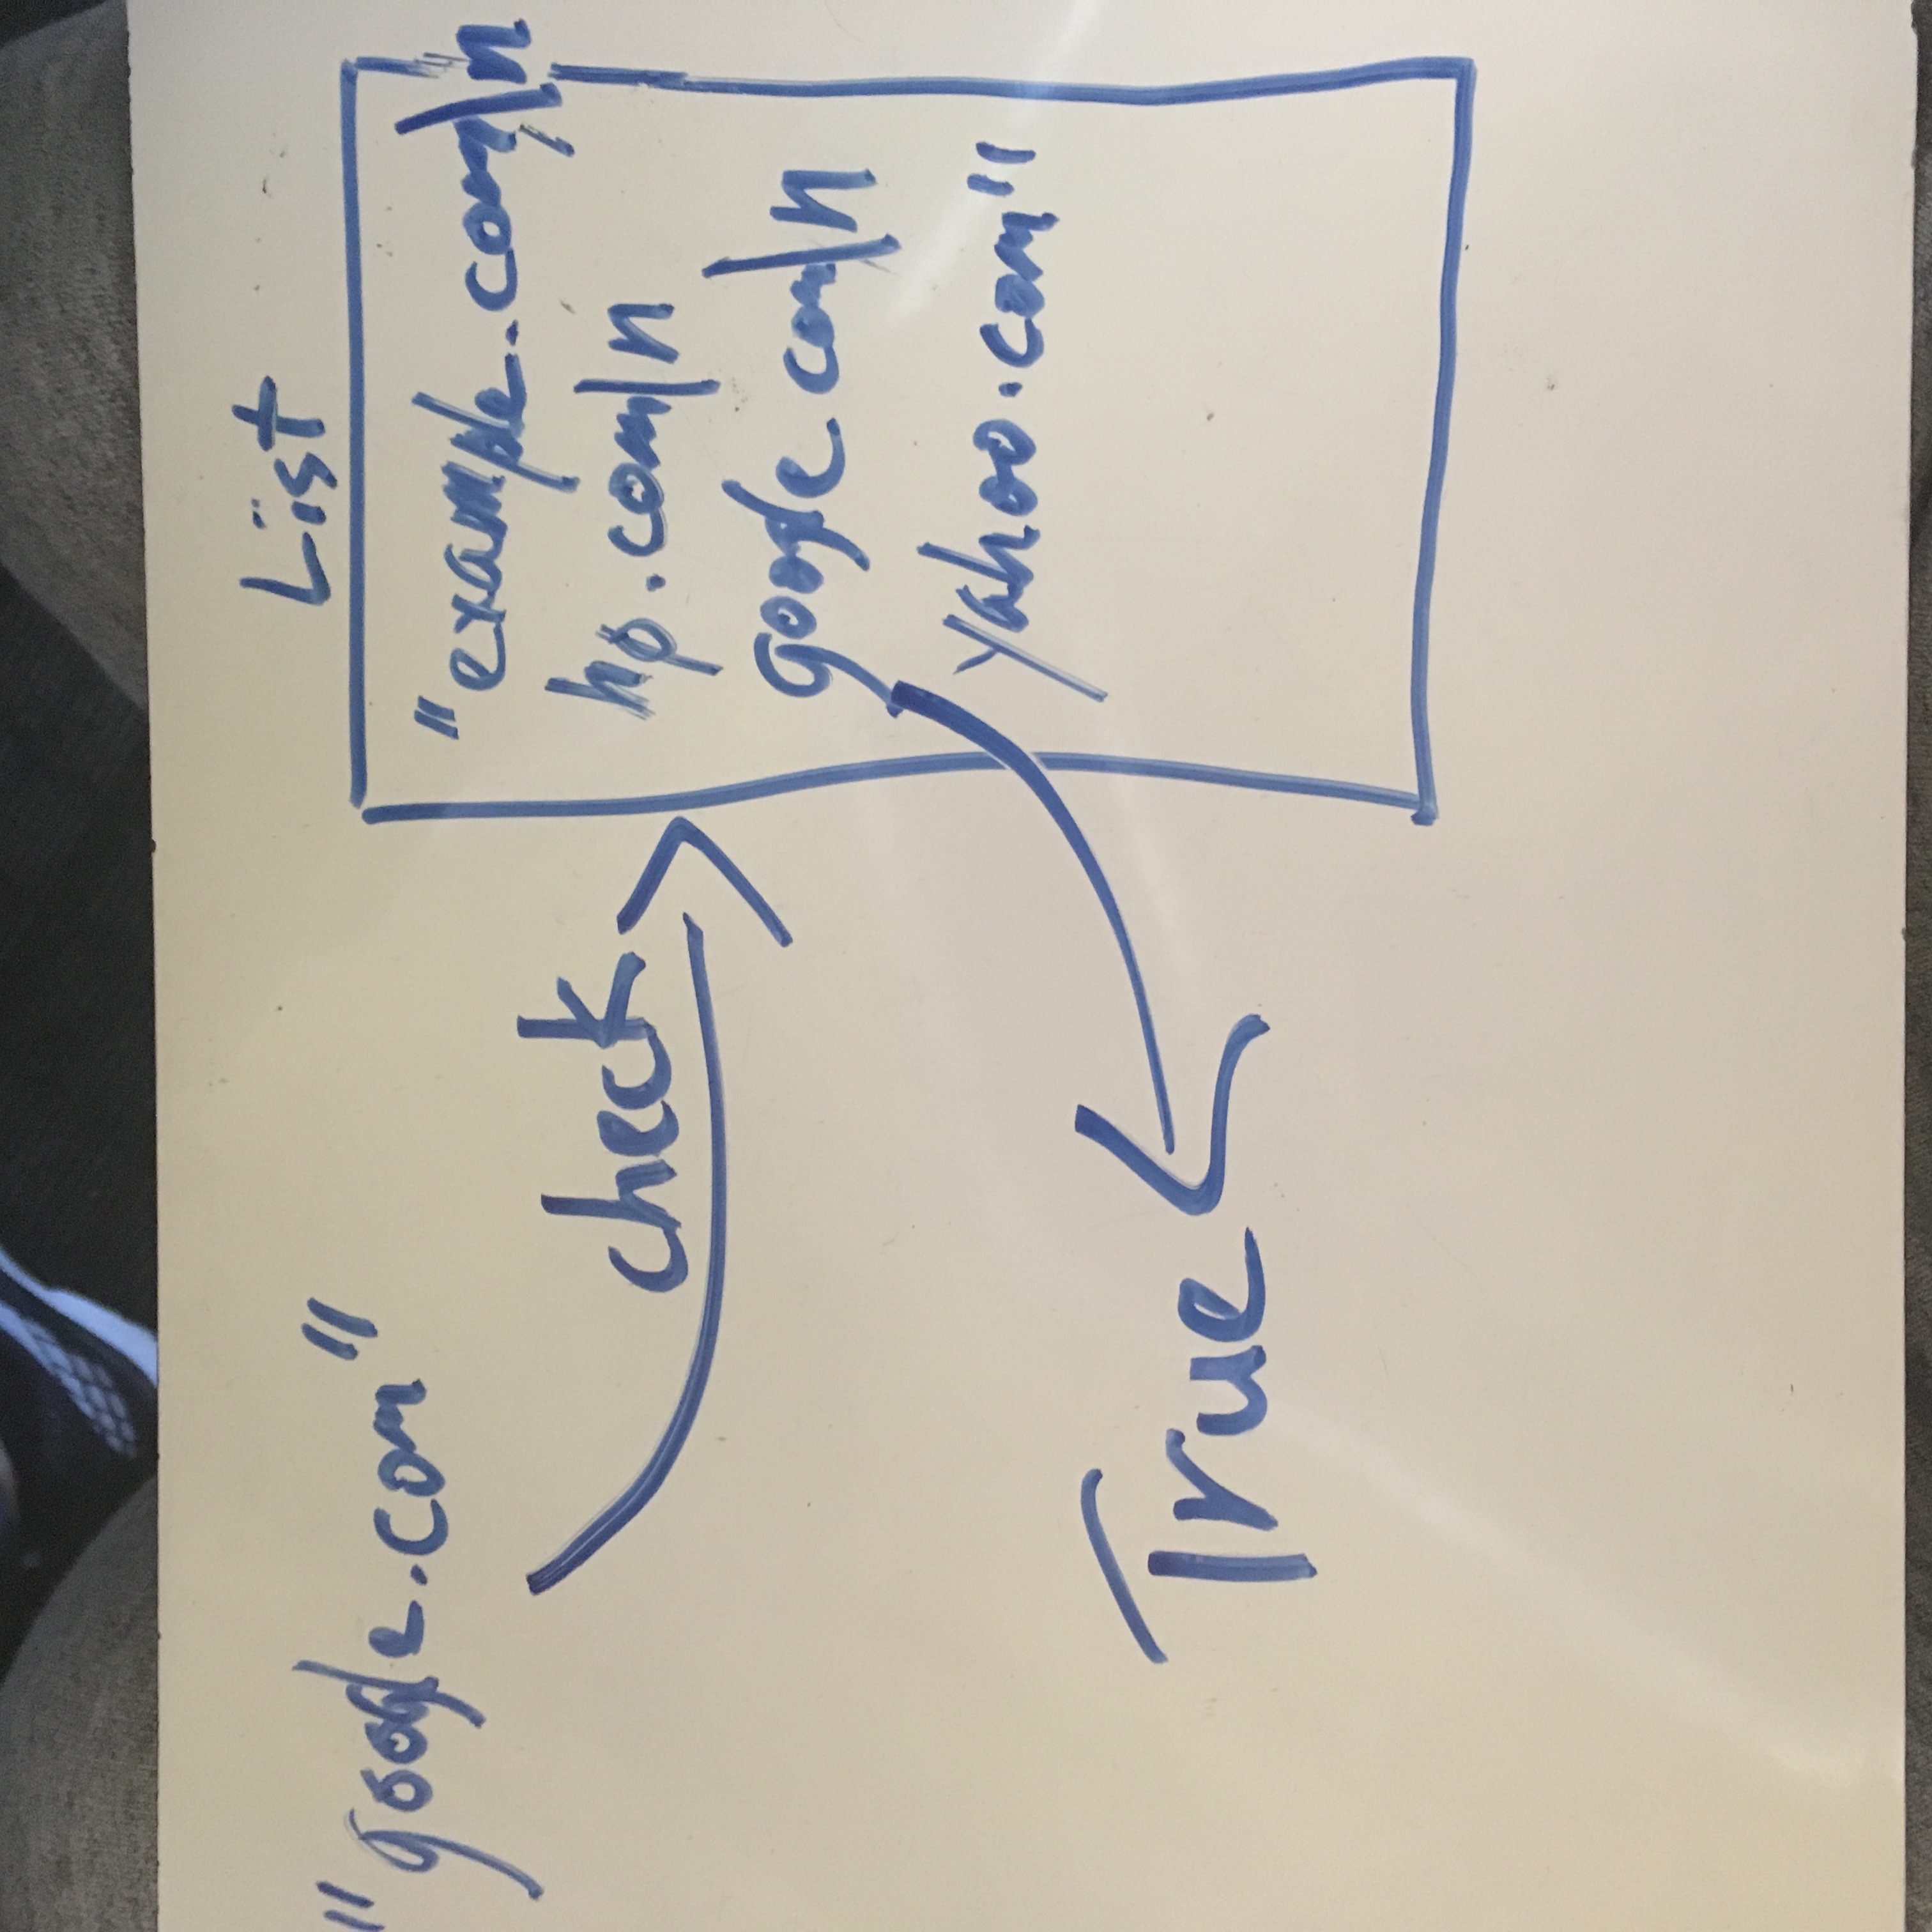 "google.com"
check
List
"example.com\n
hp.com\n
google.com\n
yahoo.com"
True